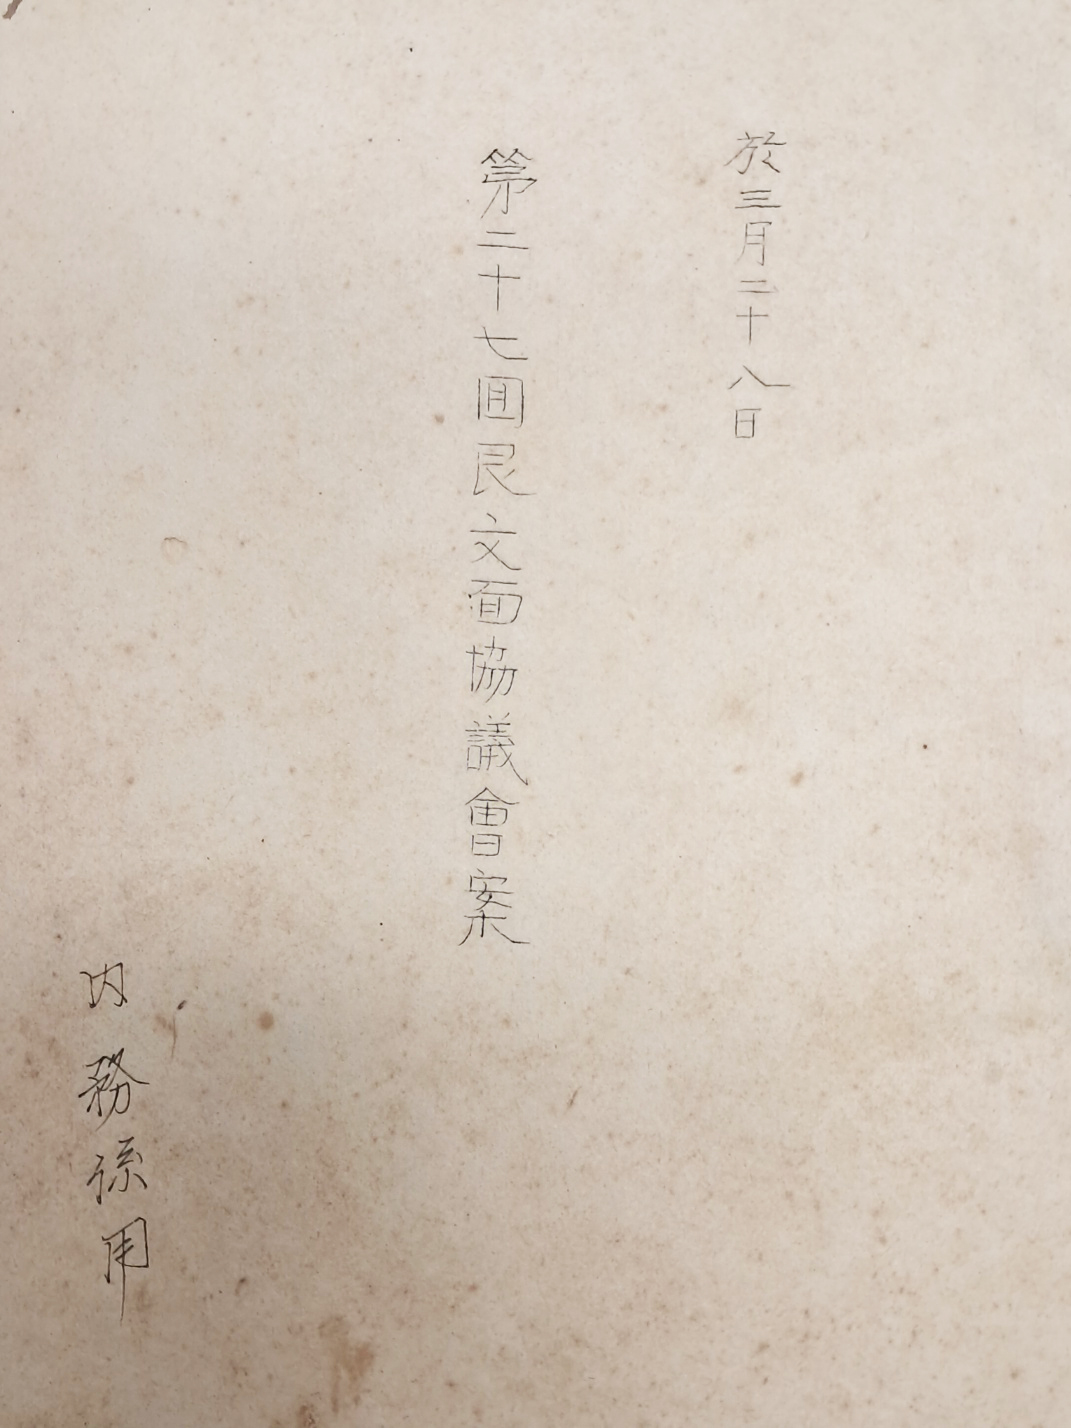 於三月二十八日
第二十七囬艮文面協議會案
内務係用